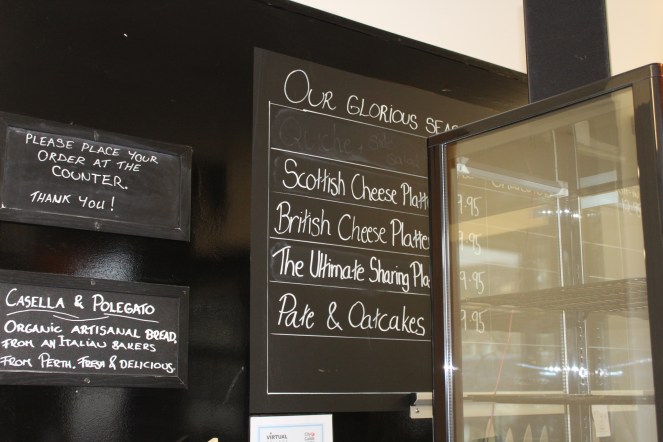 PLEASE PLACE YOUR
ORDER AT THE
COUNTER.
THANK YOU!
CASELLA & POLEGATO
ORGANIC ARTISANAL BREAD,
FROM AN ITALIAN BAKERS
FROM PERTH. FRESH & DELICIOUS.
OUR GLORIOUS SEAS
Quiche,
Salad
Scottish Cheese Platt
British Cheese Platter
.95
The Ultimate Sharing Pla
.95
Pate & Oatcakes
.95
VIRTUAL